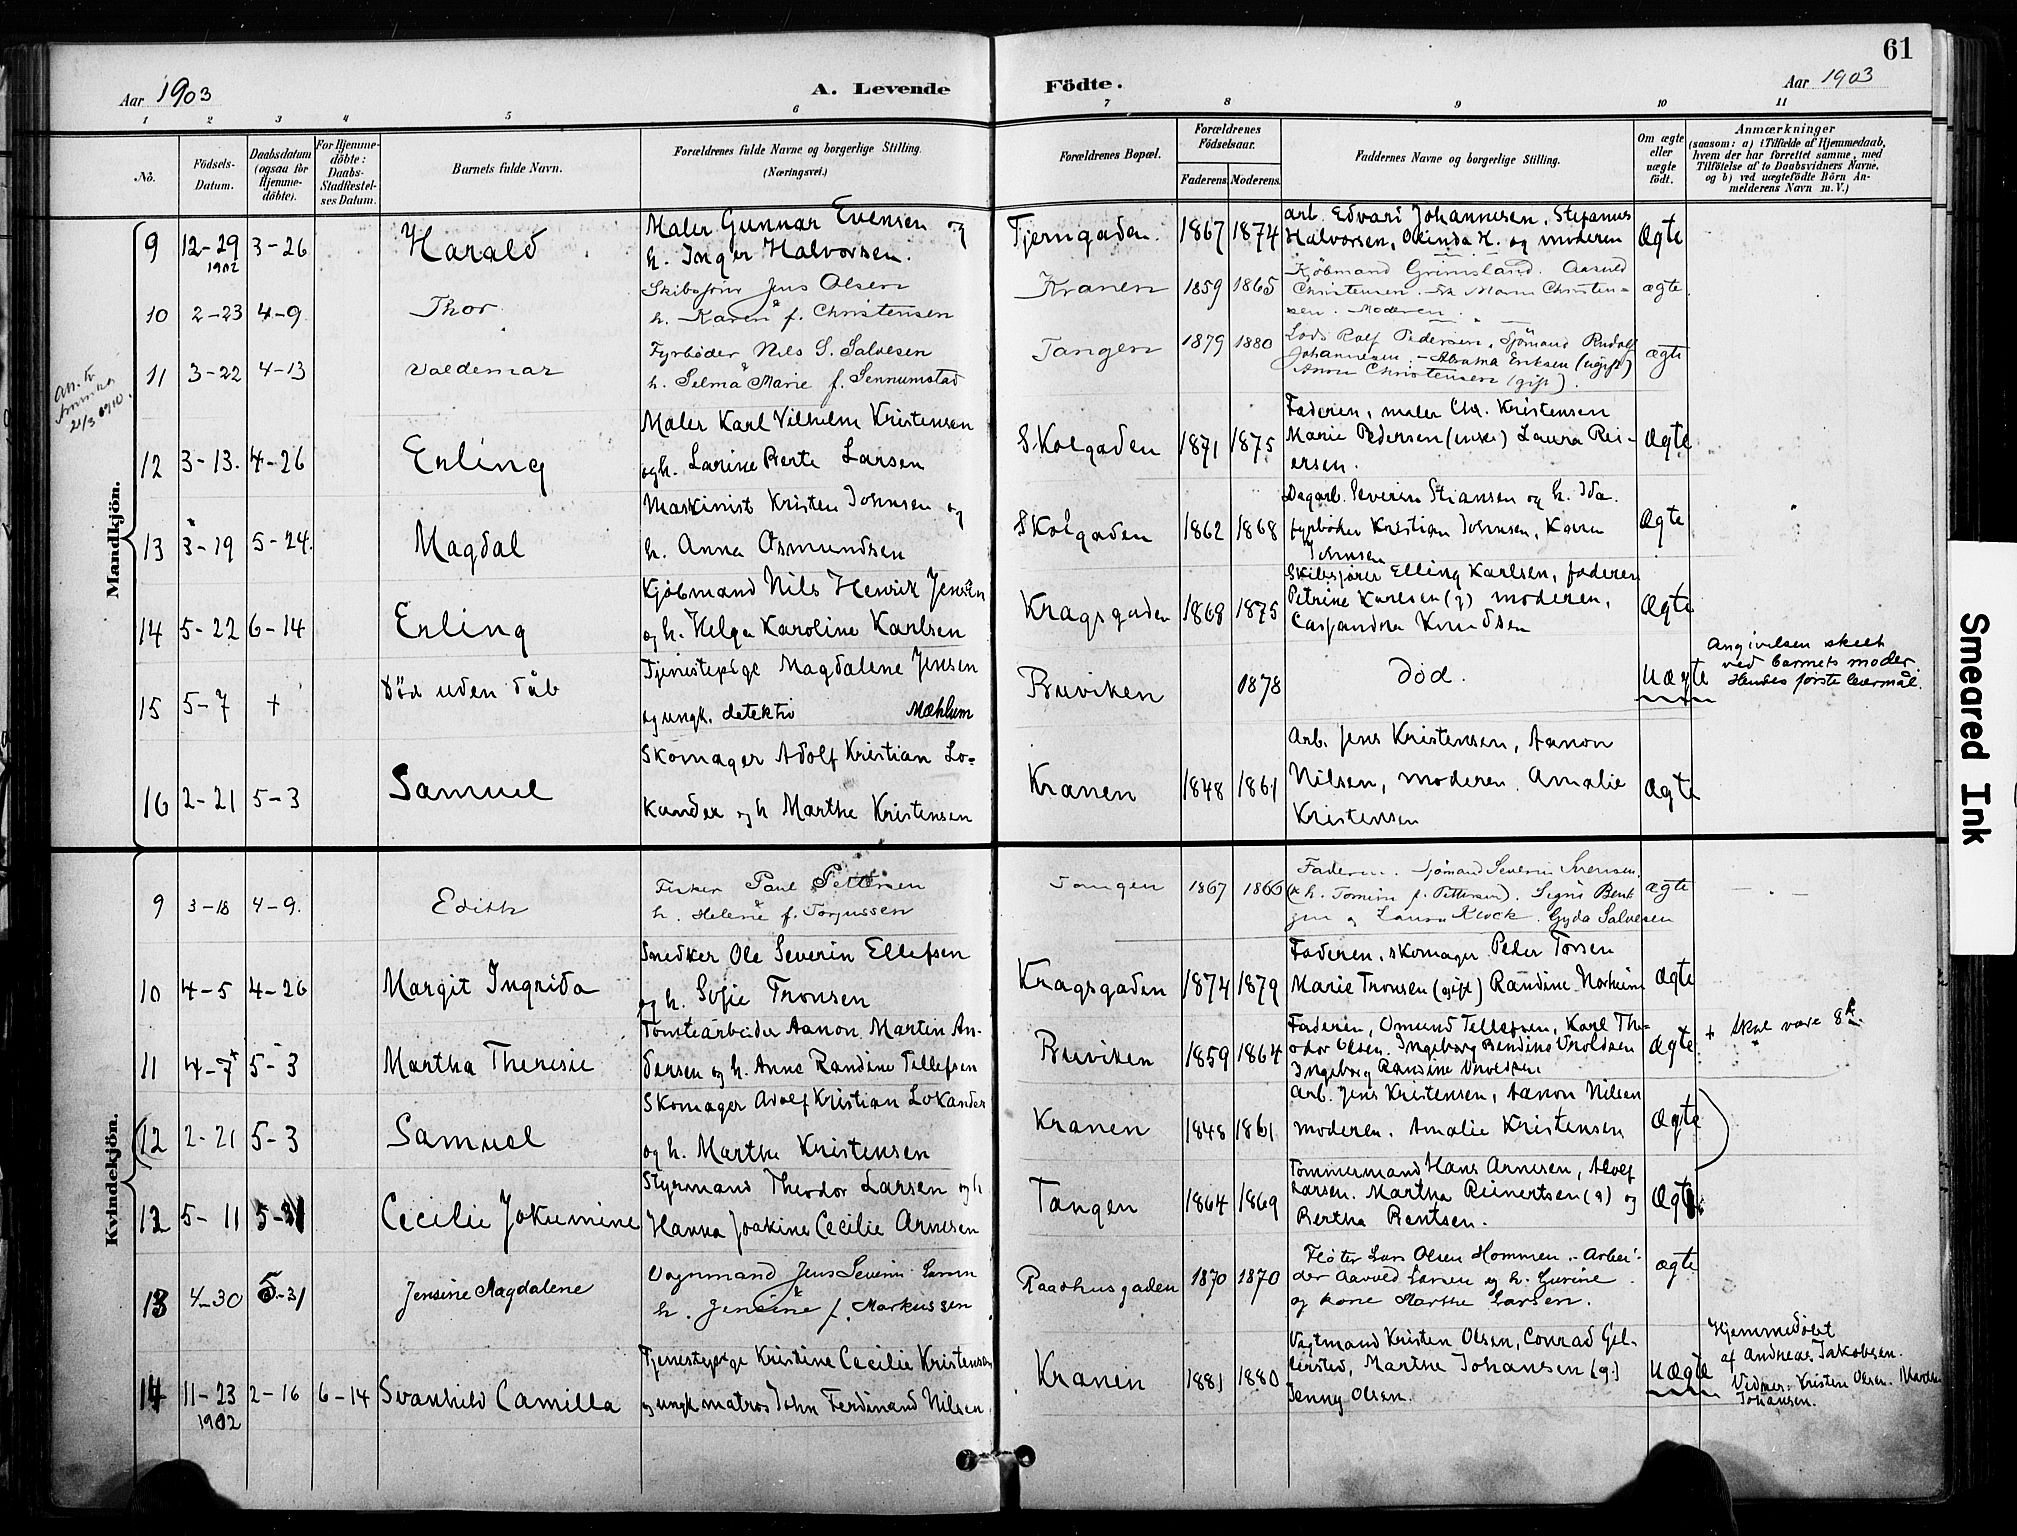 61
Aar 1903
A. Levende Födte.
Aar 1903
1 2 3 4 5 6 7 8 9 10 11
No.
Födsels-Datum.
Daabsdatum (ogsaa för Hjemme-döbte).
For Hjemme-döbte: Daabs-Stadfæstel-ses Datum.
Barnets fulde Navn.
Forældrenes fulde Navne og borgerlige Stilling.
(Næringsvei.)
Forældrenes Bopæl.
Forældrenes Födselsaar.
Faderens. Moderens.
Faddernes Navne og borgerlige Stilling.
Om ægte eller uægte födt.
Anmærkninger
(saasom: a) i Tilfælde af Hjemmedaab,
hvem der har forrettet samme, med
Tilföielse af to Daabsvidners Navne,
og b) ved uægtefödte Börn An-
melderens Navn m. V.)
Mandkjön.
9 12-29 1902 3-26 Harald
Maler Gunnar Evensen og
h. Inger Halvorsen.
Tjerngaden. 1867 1874
arb. Edvard Johannesen, Stefanus
Halvorsen, H. og moderen
Ægte
10 2-23 4-9 Thor
Skibsförer Jens Olsen
h. Karen f. Christensen
Kranen 1859 1865
Kjøbmand Grimsland. Aasvld
Christensen. Maren Christen-
sen. Moderen.
ægte
11 3-22 4-13 Valdemar
Fyrbøder Nils S. Salvesen
h. Selma Marie f. Sennumstad
Tangen 1879 1880
Lods Rolf Pedersen, Sjömand Rudolf
Johannesen. - Abrama Eriksen (ugift)
Anna Christensen (gift).
ægte
21/3 1910.
12 3-13. 4-26 Erling
Maler Karl Vilhelm Kristensen
og h. Larine Berte Larsen
Skolgaden 1871 1875
Faderen, maler Chr. Kristensen
Marie Pedersen (enke) Laura Rei-
ersen.
Ægte
13 3-19 5-24. Magdal
Maskinist Kristen Johnsen og
h. Anna Osmundsen
Skolgaden 1862 1868
Dagarb. Severin Stiansen og h. Ida.
fyrbøder Kristian Johnsen, Karen
Johnsen
Ægte
14 5-22 6-14 Erling
Kjøbmand Nils Henrik Jensen
og h. Helga Karoline Karlsen
Kragsgaden 1868 1875
Skibsförer Elling Karlsen, faderen
Petrine Karlsen (g) moderen,
Cassandra Knudsen
Ægte
15 5-7 + Død uden dåb
Tjenestepige Magdalene Jensen
og ungk. detektiv Mæhlum
Buviken 1878
død.
Uægte
Angivelsen skeet
ved barnets moder.
Hendes første leiermål.
16 2-21 5-3 Samuel
Skomager Adolf Kristian Lo-
kander og h Marthe Kristensen
Kranen 1848 1861
Arb. Jens Kristensen, Aanon
Nilsen, moderen. Amalie
Kristensen
Ægte
Kvindekjön.
9 3-18 4-9. Edith
Fisker Paul Pettersen
h. Helene f. Torjussen
Tangen 1867 1866
Faderen. Sjömand Severin Svensen,
(& h. Tomine f. Pettersen). Signe Bent
Laura Klock. Gyda Salvesen
ægte
10 4-5 4-26 Margit Ingrida
Snedker Ole Severin Ellefsen
og h. Sofie Tronsen
Kragsgaden 1874 1879
Faderen, skomager Peder Torsen
Marie Tronsen (gift) Randine Norheim
Ægte
11 4-7+ 5-3 Martha Theresie
Tomtearbeider Aanon Martin An-
dersen og h. Anne Randine Tellefsen
Buviken 1859 1864
Faderen, Omund Tellefsen, Karl The-
odor Olsen. Ingeborg Bendine Unoldsen
Ingeborg Randine
Ægte
+ Skal være 8de.
(12 2-21 5-3 Samuel
Skomager Adolf Kristian Lokander
og h. Marthe Kristensen
Kranen 1848 1861
Arb. Jens Kristensen, Aanon Nilsen
moderen. Amalie Kristensen
Ægte )
12 5-11 5-31 Cecilie Jokumine
Styrmand Theodor Larsen og h
Hanna Joakine Cecilie Arnesen
Tangen 1864 1869
Tømmermand Hans Arnesen, Adolf
Larsen. Martha Reinertsen (g) og
Bertha Bentsen.
Ægte
13 4-30 5-31 Jensine Magdalene
Vognmand Jens Severin Larsen
h. Jensine f. Markussen
Raadhusgaden 1870 1870
Fløter Lars Olsen Hommen. - Arbei-
der Aavold Larsen og h. Gurine
og kone Marthe Larsen.
ægte
14 11-23 1902 2-16 6-14 Svanhild Camilla
Tjenestepige Kristine Cecilie Kristensen
og ungk matros John Ferdinand Nilsen.
Kranen 1881 1880
Vagtmand Kristen Olsen, Conrad Gel-
lersted, Marthe Johansen (g.)
Jenny Olsen.
Uægte
Hjemmedøbt
af Andreas Jakobsen.
Vidner: Kristen Olsen. Marthe
Johansen.
Smeared Ink